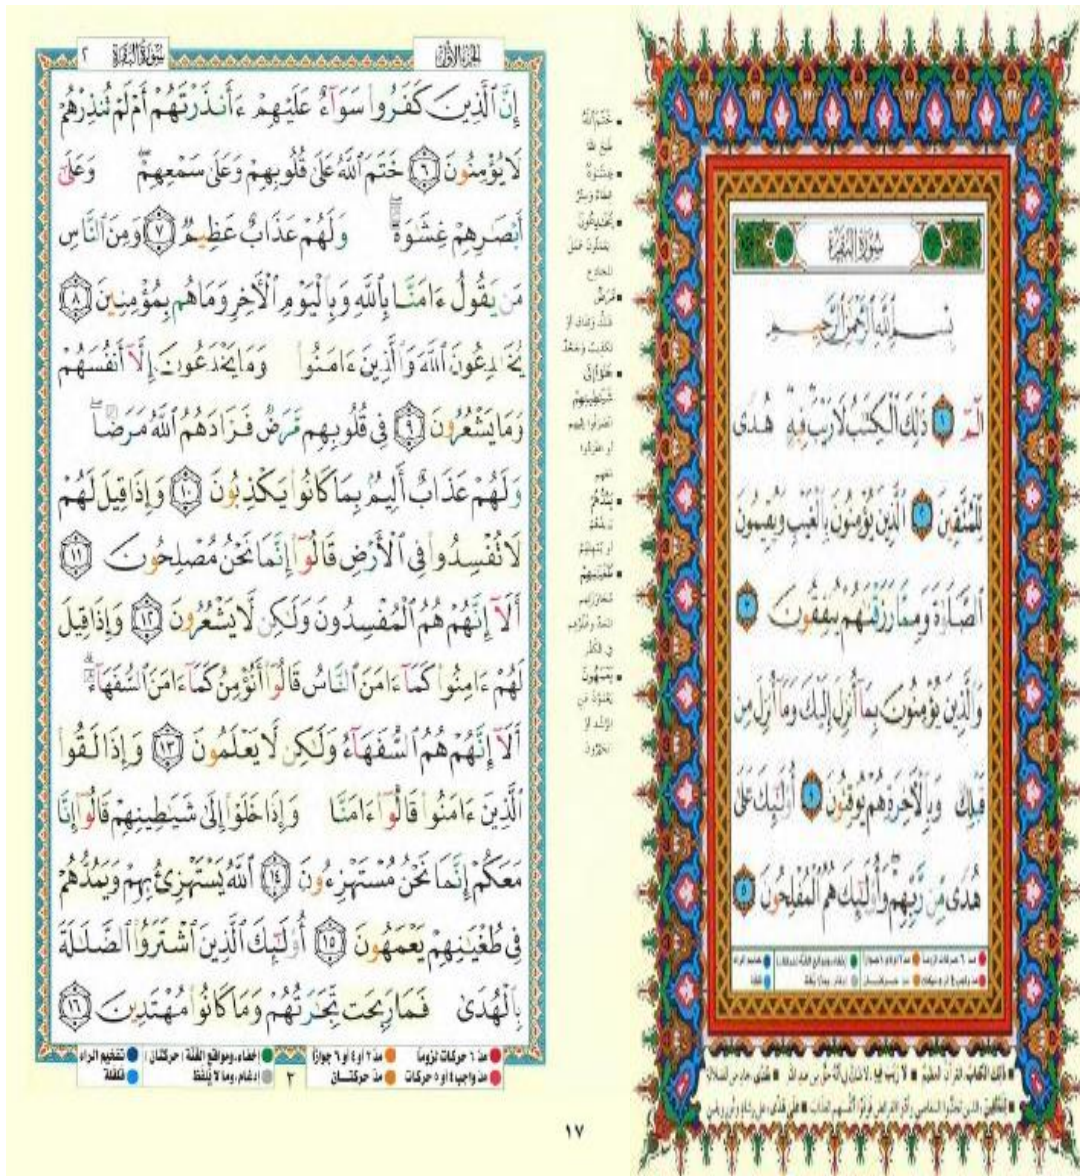 سُورَةُ البَقَرَةِ
بِسْمِ ٱللَّهِ ٱلرَّحْمَٰنِ ٱلرَّحِيمِ
الٓمٓ ١ ذَٰلِكَ ٱلْكِتَٰبُ لَا رَيْبَ فِيهِ هُدًى
لِّلْمُتَّقِينَ ٢ ٱلَّذِينَ يُؤْمِنُونَ بِٱلْغَيْبِ وَيُقِيمُونَ
ٱلصَّلَوٰةَ وَمِمَّا رَزَقْنَٰهُمْ يُنفِقُونَ ٣
وَٱلَّذِينَ يُؤْمِنُونَ بِمَآ أُنزِلَ إِلَيْكَ وَمَآ أُنزِلَ مِن
قَبْلِكَ وَبِٱلْأَخِرَةِ هُمْ يُوقِنُونَ ٤ أُو۟لَٰٓئِكَ عَلَىٰ
هُدًى مِّن رَّبِّهِمْ وَأُو۟لَٰٓئِكَ هُمُ ٱلْمُفْلِحُونَ ٥
الجزء الأول
سورة البقرة ٢
إِنَّ ٱلَّذِينَ كَفَرُوا۟ سَوَآءٌ عَلَيْهِمْ ءَأَنذَرْتَهُمْ أَمْ لَمْ تُنذِرْهُمْ
لَا يُؤْمِنُونَ ٦ خَتَمَ ٱللَّهُ عَلَىٰ قُلُوبِهِمْ وَعَلَىٰ سَمْعِهِمْ ۖ وَعَلَىٰٓ
أَبْصَٰرِهِمْ غِشَٰوَةٌ ۖ وَلَهُمْ عَذَابٌ عَظِيمٌ ٧ وَمِنَ ٱلنَّاسِ
مَن يَقُولُ ءَامَنَّا بِٱللَّهِ وَبِٱلْيَوْمِ ٱلْأَخِرِ وَمَا هُم بِمُؤْمِنِينَ ٨
يُخَٰدِعُونَ ٱللَّهَ وَٱلَّذِينَ ءَامَنُوا۟ وَمَا يَخْدَعُونَ إِلَّآ أَنفُسَهُمْ
وَمَا يَشْعُرُونَ ٩ فِى قُلُوبِهِم مَّرَضٌ فَزَادَهُمُ ٱللَّهُ مَرَضًا ۖ
وَلَهُمْ عَذَابٌ أَلِيمٌۢ بِمَا كَانُوا۟ يَكْذِبُونَ ١٠ وَإِذَا قِيلَ لَهُمْ
لَا تُفْسِدُوا۟ فِى ٱلْأَرْضِ قَالُوٓا۟ إِنَّمَا نَحْنُ مُصْلِحُونَ ١١
أَلَآ إِنَّهُمْ هُمُ ٱلْمُفْسِدُونَ وَلَٰكِن لَّا يَشْعُرُونَ ١٢ وَإِذَا قِيلَ
لَهُمْ ءَامِنُوا۟ كَمَآ ءَامَنَ ٱلنَّاسُ قَالُوٓا۟ أَنُؤْمِنُ كَمَآ ءَامَنَ ٱلسُّفَهَآءُ ۗ
أَلَآ إِنَّهُمْ هُمُ ٱلسُّفَهَآءُ وَلَٰكِن لَّا يَعْلَمُونَ ١٣ وَإِذَا لَقُوا۟
ٱلَّذِينَ ءَامَنُوا۟ قَالُوٓا۟ ءَامَنَّا وَإِذَا خَلَوْا۟ إِلَىٰ شَيَٰطِينِهِمْ قَالُوٓا۟ إِنَّا
مَعَكُمْ إِنَّمَا نَحْنُ مُسْتَهْزِءُونَ ١٤ ٱللَّهُ يَسْتَهْزِئُ بِهِمْ وَيَمُدُّهُمْ
فِى طُغْيَٰنِهِمْ يَعْمَهُونَ ١٥ أُو۟لَٰٓئِكَ ٱلَّذِينَ ٱشْتَرَوُا۟ ٱلضَّلَٰلَةَ
بِٱلْهُدَىٰ فَمَا رَبِحَت تِّجَٰرَتُهُمْ وَمَا كَانُوا۟ مُهْتَدِينَ ١٦
مد ٦ حركات لزوماً مد ٢ أو ٤ أو ٦ جوازاً إخفاء، ومواقع الغنة (حركتان) تفخيم الراء
مد واجب ٤ أو ٥ حركات مد حركتان ٣ إدغام، وما لا يُلفظ قلقلة
خَتَمَ اللهُ
طبع الله
غِشَٰوَةٌ
غطاء وستر
يُخَٰدِعُونَ
مَرَضٌ
شَيَٰطِينِهِمْ
يَمُدُّهُمْ
طُغْيَٰنِهِمْ
يَعْمَهُونَ
١٧